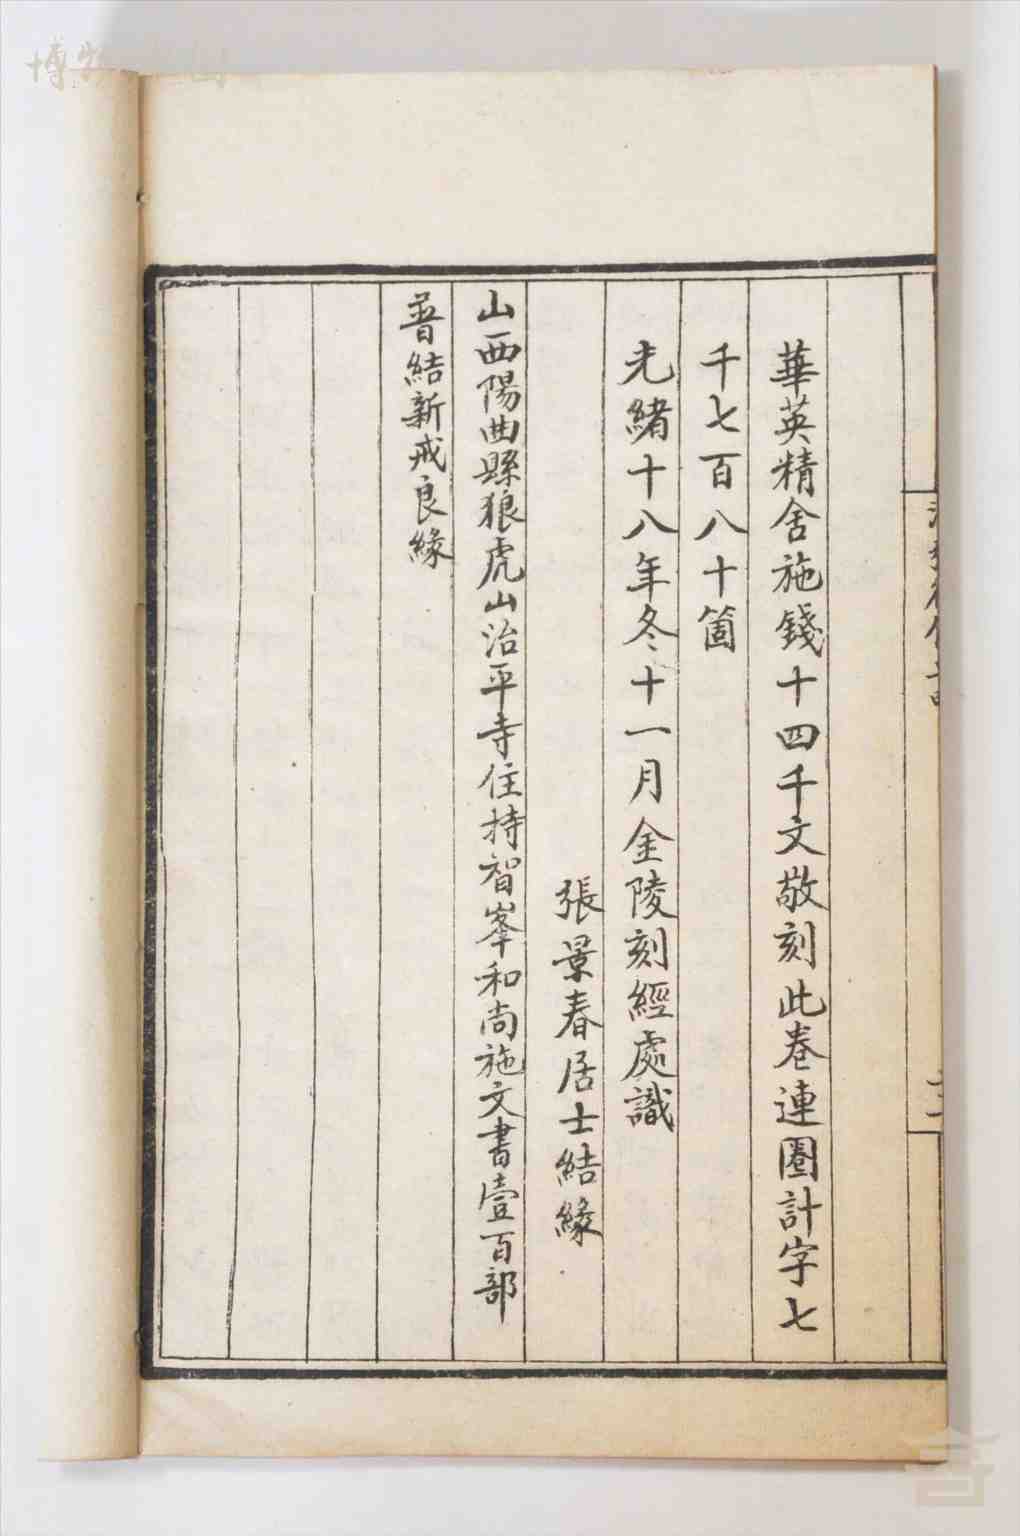 華英精舍施錢十四千文敬刻此卷連圈計字七
千七百八十箇
光緒十八年冬十一月金陵刻經處識
張景春居士結緣
山西陽曲縣狼虎山治平寺住持智峯和尚施文書壹百部
普結新戒良緣